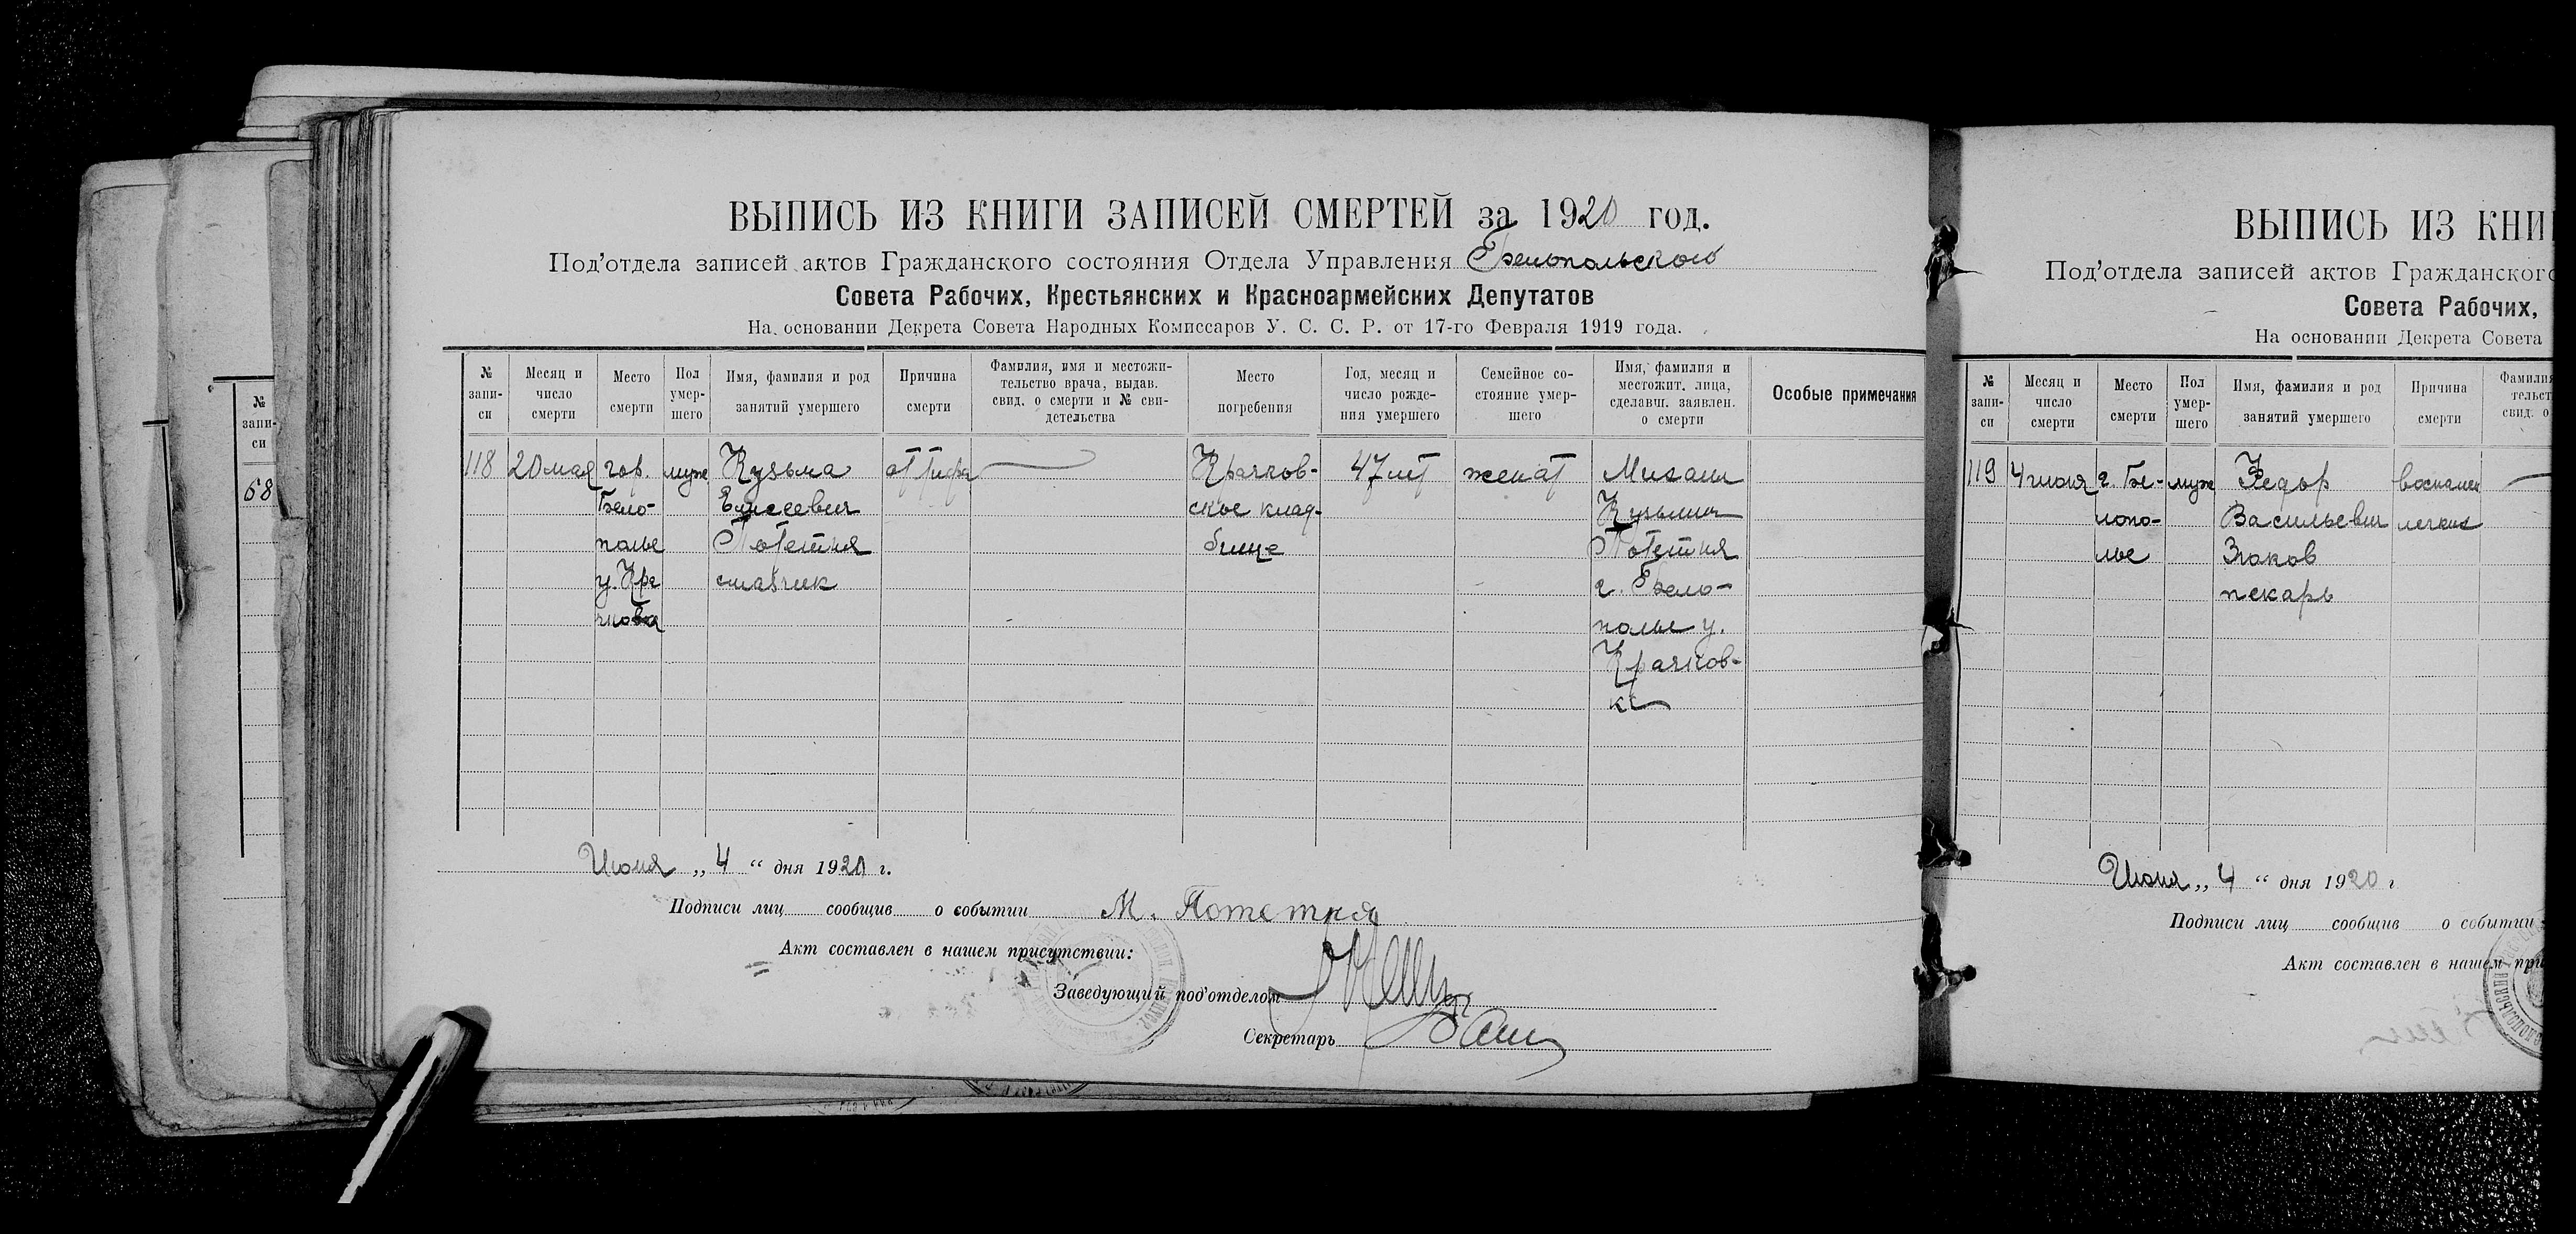 ВЫПИСЬ ИЗ КНИГИ ЗАПИСЕЙ СМЕРТЕЙ за 1920 год.
Под'отдела записей актов Гражданского состояния Отдела Управления Белопольского
Совета Рабочих, Крестьянских и Красноармейских Депутатов
На основании Декрета Совета Народных Комиссаров У. С. С. Р. от 17-го Февраля 1919 года.
№ запи- си
Месяц и число смерти
Место смерти
Пол умер- шего
Имя, фамилия и род занятий умершего
Причина смерти
Фамилия, имя и местожи- тельство врача, выдав. свид. о смерти и № сви- детельства
Место погребения
Год, месяц и число рожде- ния умершего
Семейное со- стояние умер- шего
Имя, фамилия и местожит. лица, сделавш. заявлен. о смерти
Особые примечания
118 20 мая гор. муж Кузьма от тифа Крачков- 47 лет женат Михаил
Бело- Елисеевич ское клад- Кузьмич
полье Потетня бище Потетня
у. Кра г. Бело-
чковка полье у.
Крачков-
ка
Июня „ 4 “ дня 1920 г.
Подписи лиц сообщив о событии М. Потетня
Акт составлен в нашем присутствии:
Заведующий под'отделом
Секретарь
№ запи- си
68
ВЫПИСЬ ИЗ КНИ
Под'отдела записей актов Гражданского
Совета Рабочих,
На основании Декрета Совета
№ запи- си
Месяц и число смерти
Место смерти
Пол умер- шего
Имя, фамилия и род занятий умершего
Причина смерти
119 4 июня г. Бе- муж Федор воспален
лопо- Васильевич легких
лье
пекарь
Июня „ 4 “ дня 1920 г
Подписи лиц сообщив о событии
Акт составлен в нашем при